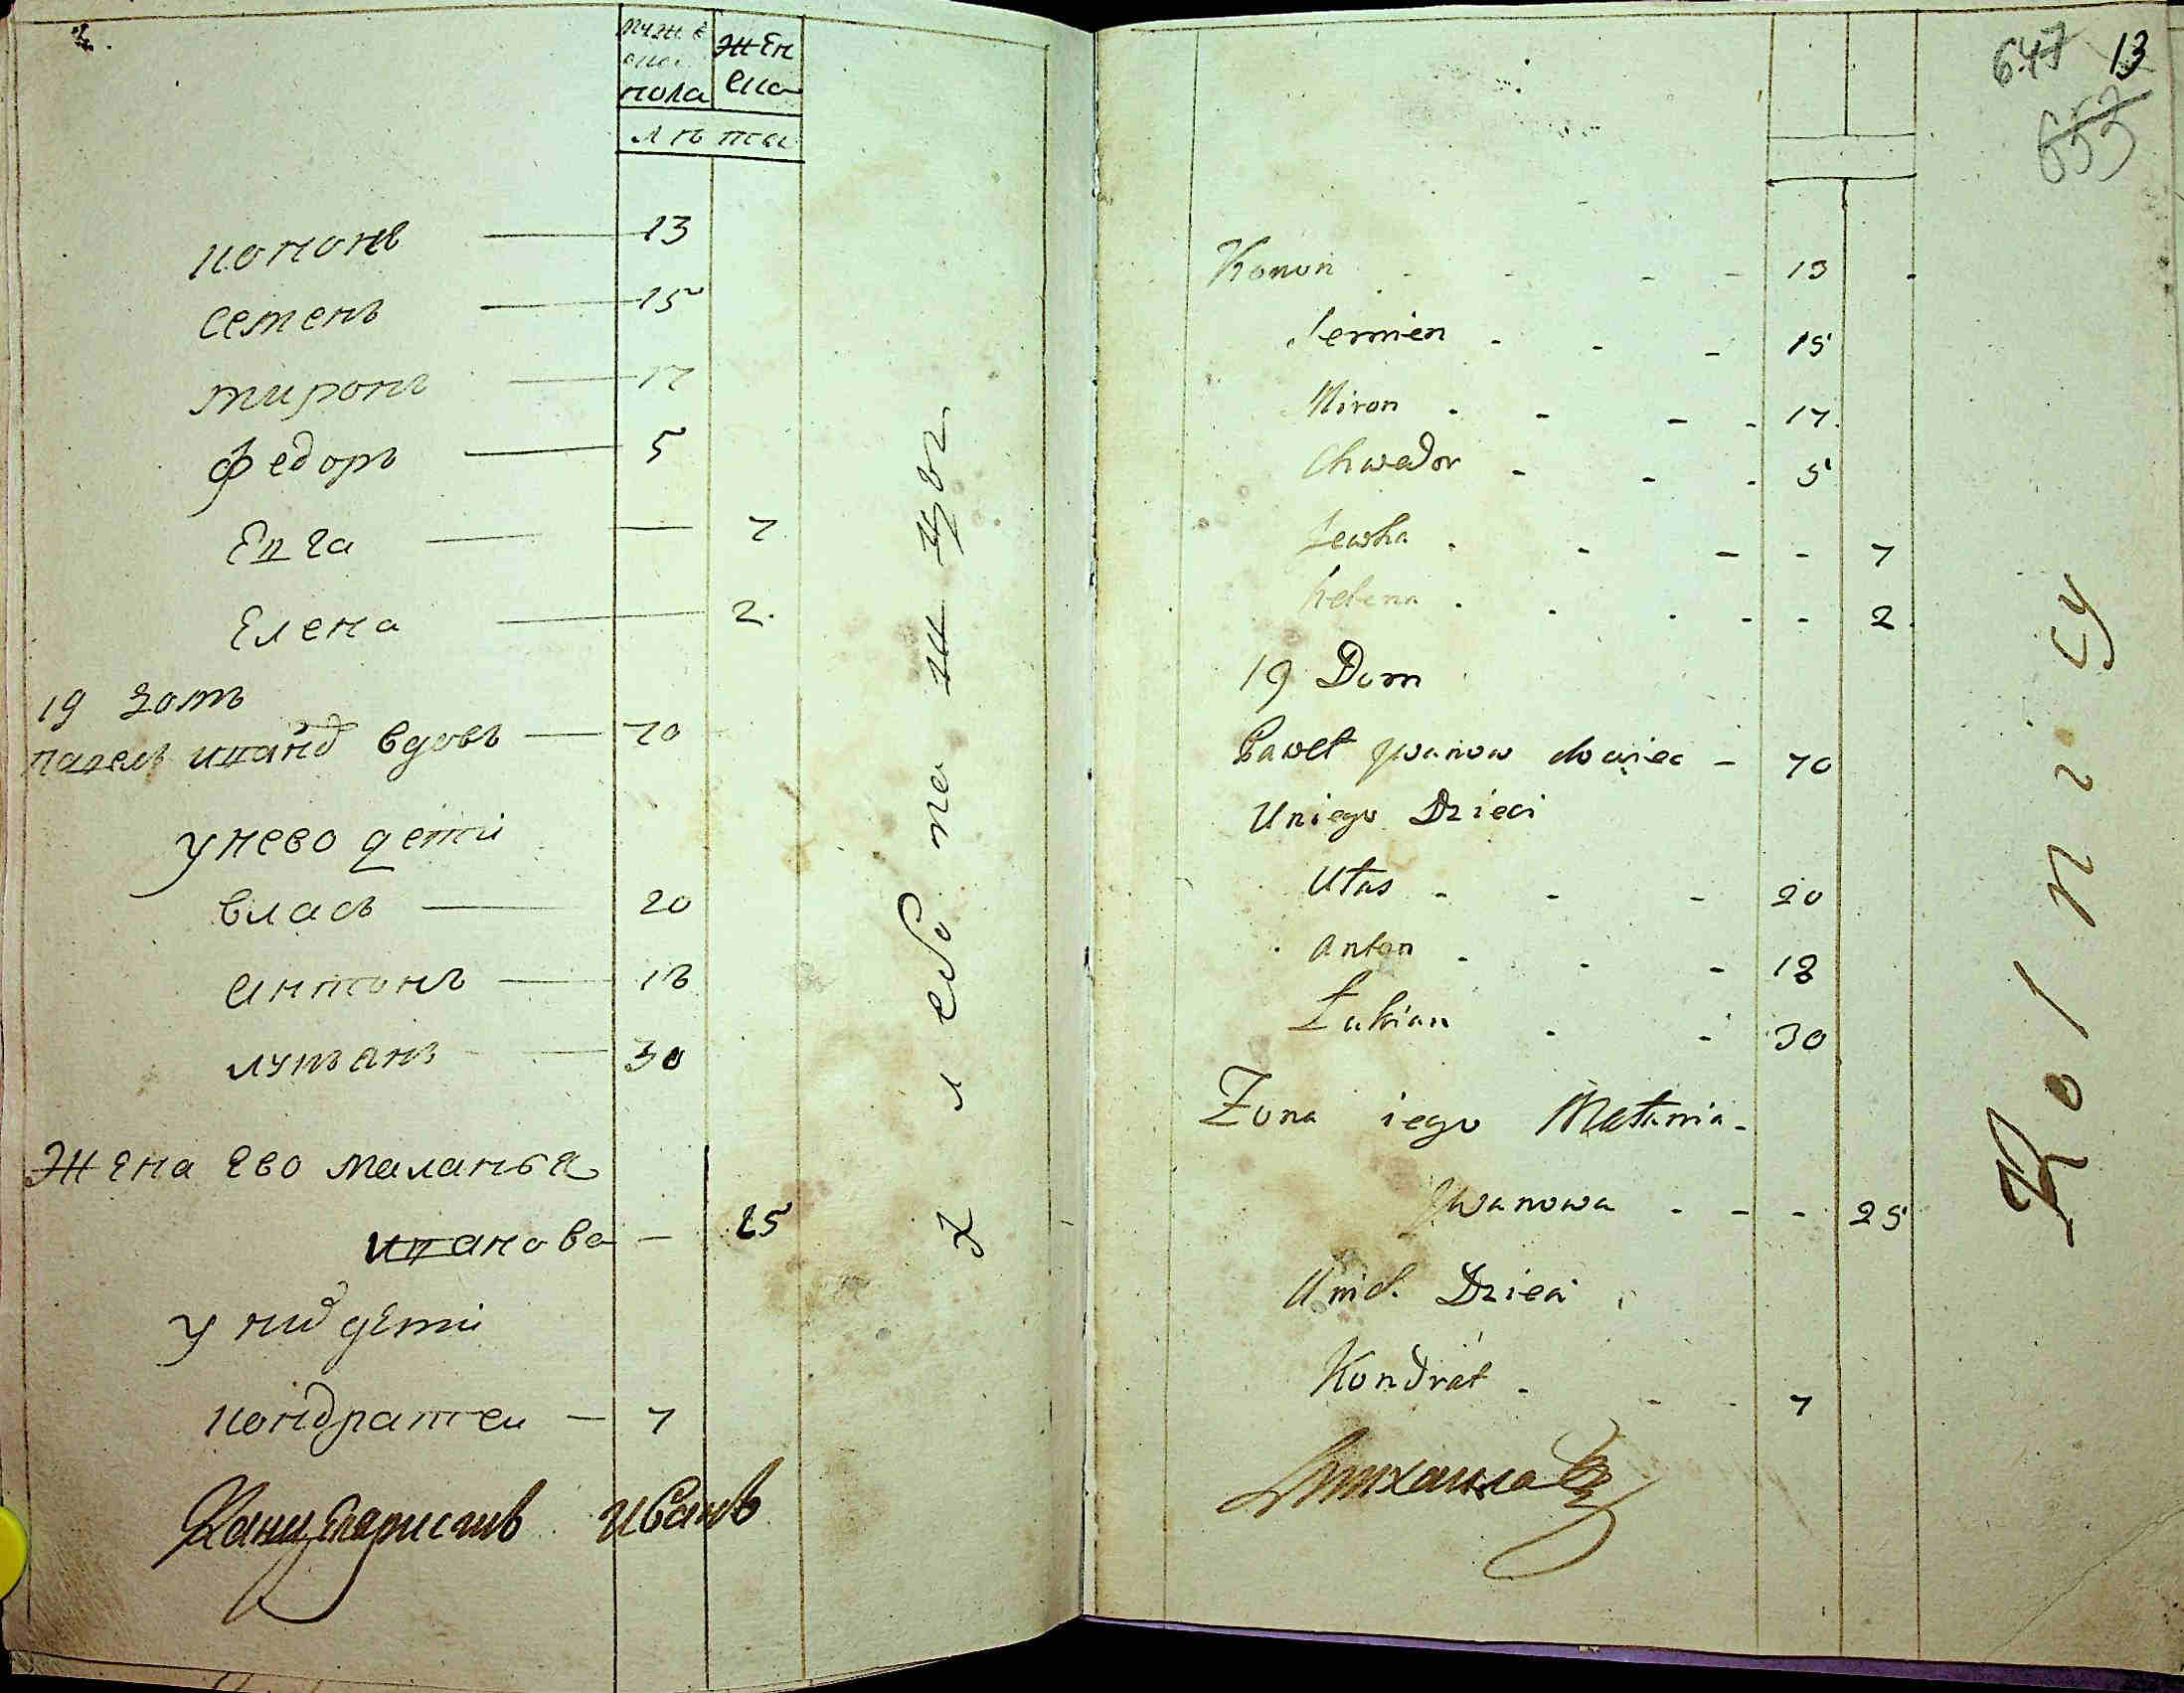 мужеска пола
женска
лѣта
кононъ — 13
семенъ — 15
миронъ — 17
федоръ — 5
Евга — 7
Елена — 2.
19 домъ
павелъ иванов вдовъ — 70
у нево дети
власъ — 20
антонъ — 18
лукьянъ — 30
Жена ево маланья
иванова — 25
у них дети
кондратеи — 7
Иванъ
хлебопашцы
647 13
653
Konon - - - - 13
Semien - - - 15
Miron - - - - 17.
Chwedor - - - 5
Jewha - - - - 7
Helena - - - - - 2.
19 Dom
Paweł Jwanow dowiec - 70
Uniego Dzieci
Ułas - - - 20
Anton - - - 18
Łukian - - 30
Zona iego Małania -
Jwanowa - - - 25
Unich Dzieci
Kondrat - - - 7
Rolnicy